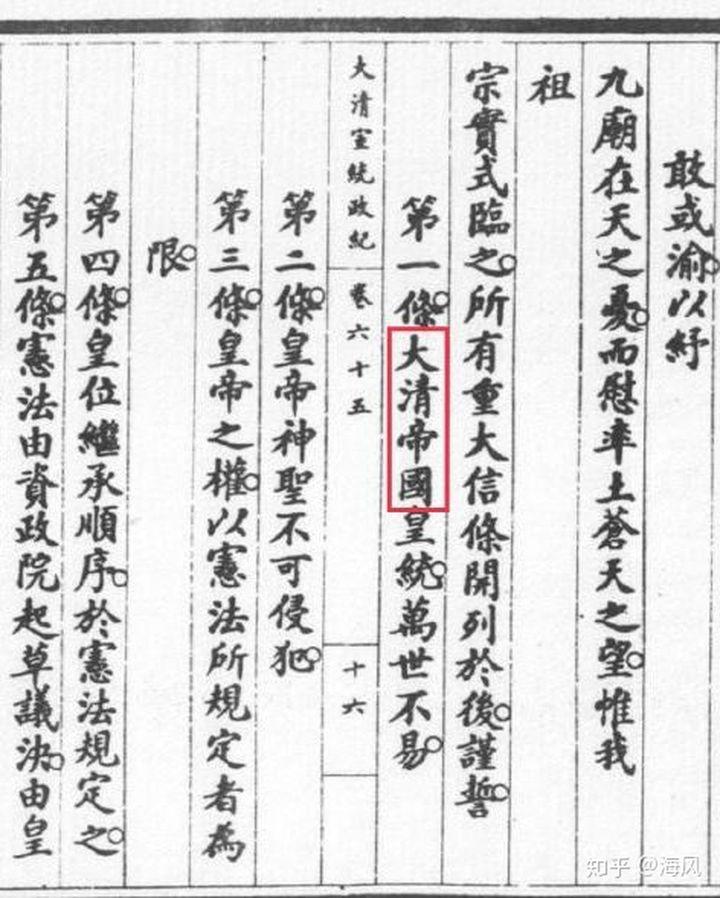 敢或渝以紓
九廟在天之憂○而慰率土蒼天之望○惟我
祖
宗實式臨之○所有重大信條開列於後○謹誓○
第一條○大清帝國皇統○萬世不易○
大清宣統政紀 卷六十五 十六
第二條○皇帝神聖不可侵犯○
第三條○皇帝之權○以憲法所規定者為
限○
第四條○皇位繼承順序○於憲法規定之○
第五條○憲法由資政院起草議決○由皇
知乎 @海风